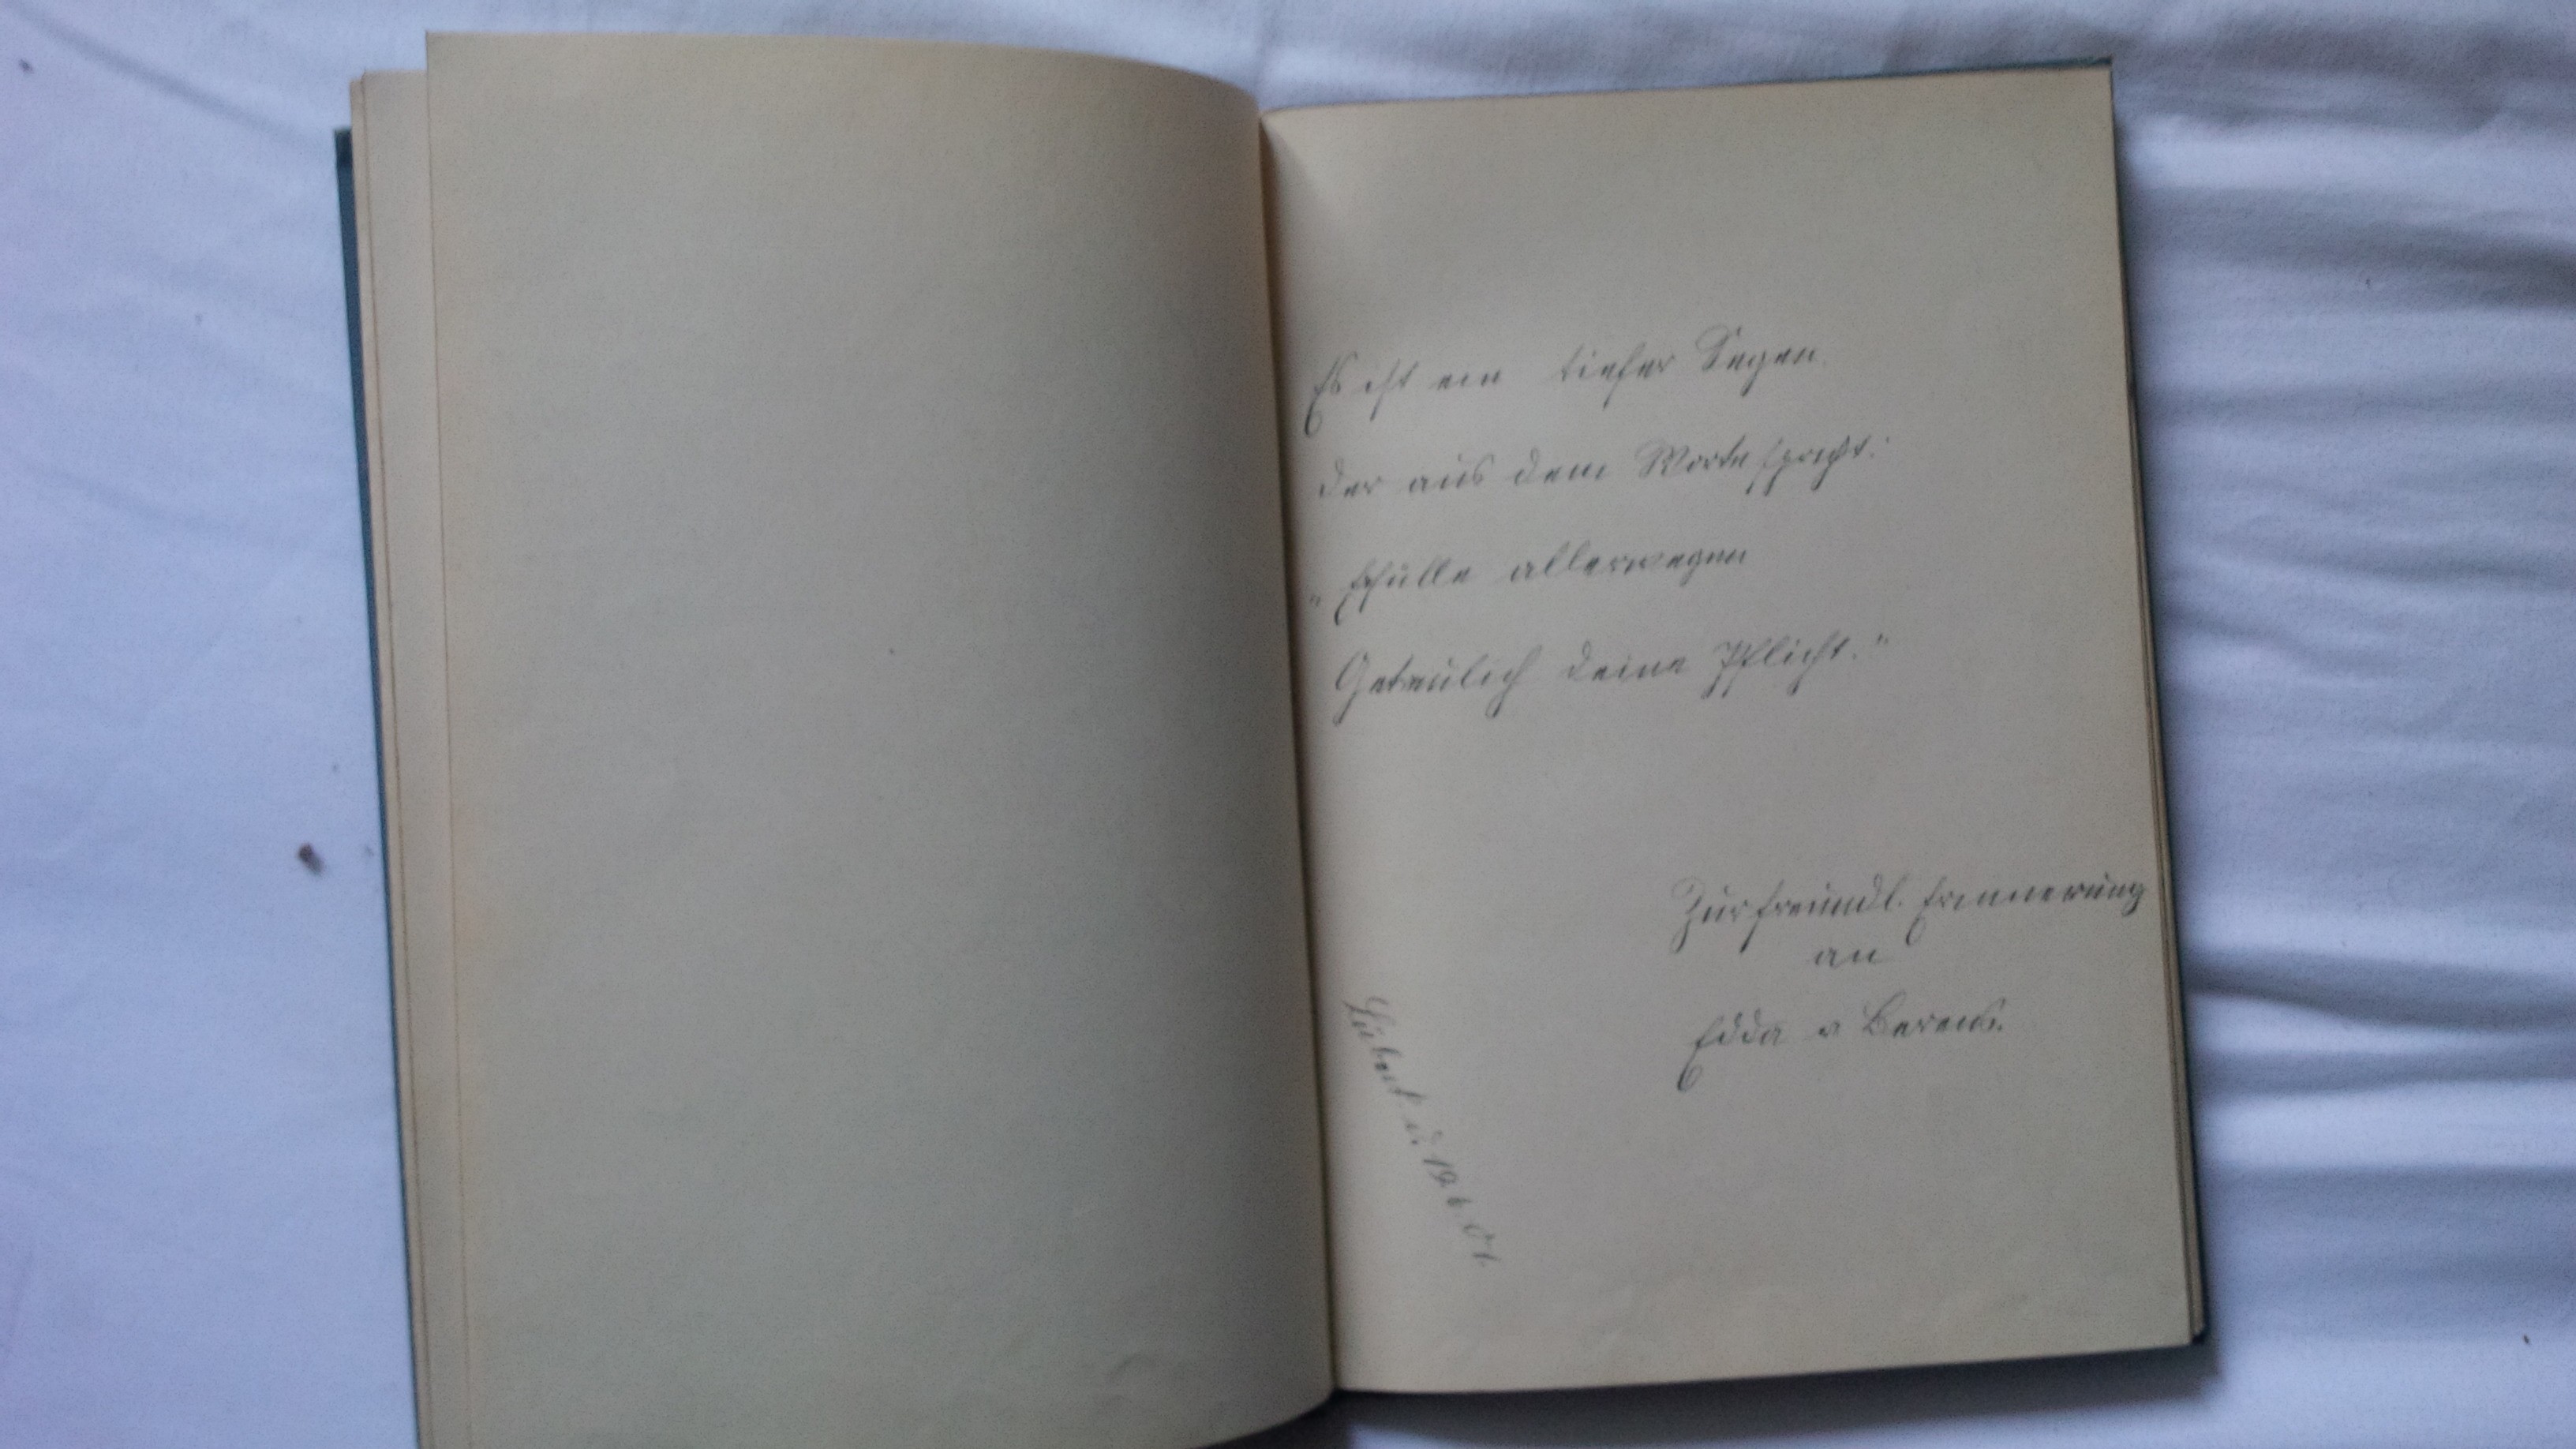 Es ist ein tiefer Segen
der aus dem Worte spricht:
„Erfülle allerwegen
Getreulich deine Pflicht."
Zur freundl. Erinnerung
an
Edda v